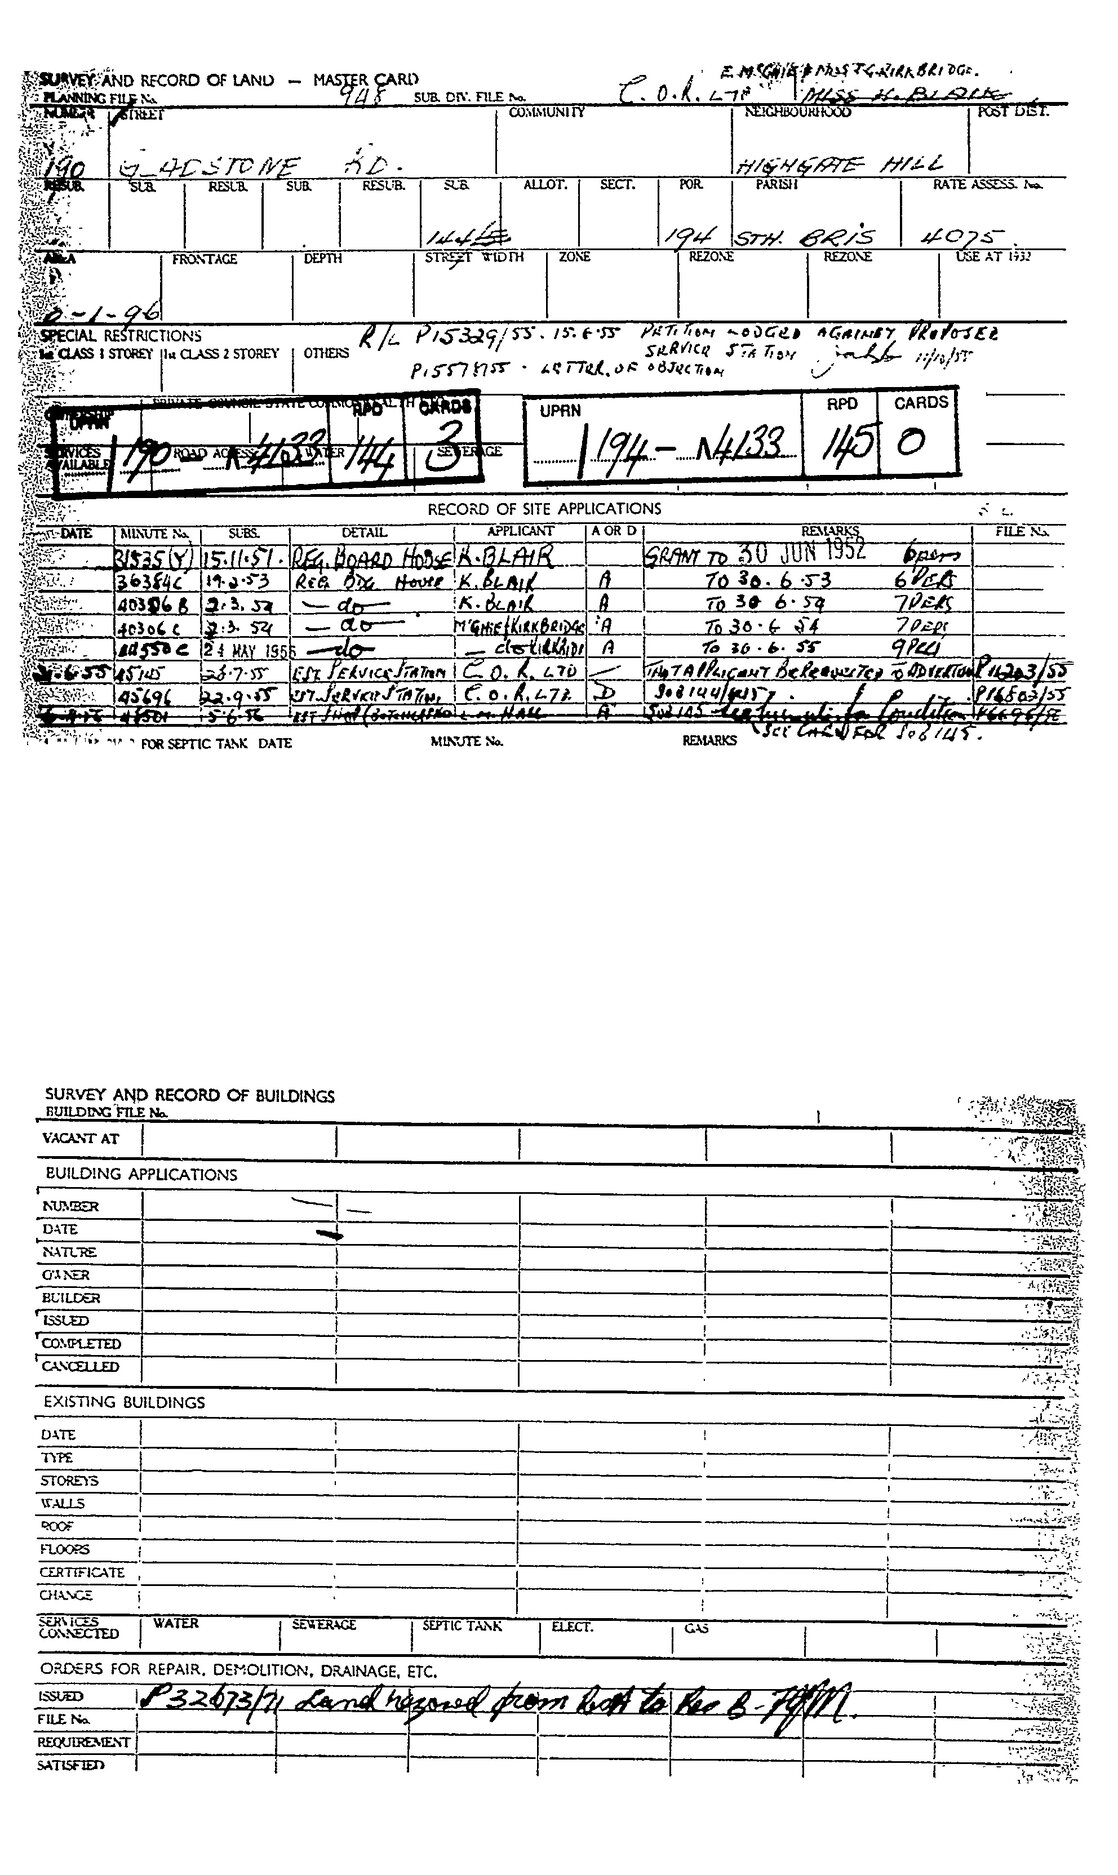 E. McGHIE & MISS T.G. KIRKBRIDGE.
SURVEY AND RECORD OF LAND — MASTER CARD
PLANNING FILE No. 948 SUB. DIV. FILE No. C.O.R. LTD MISS H. BLAIR
NUMBER STREET COMMUNITY NEIGHBOURHOOD POST DIST.
190 GLADSTONE RD. HIGHGATE HILL
RESUB. SUB. RESUB. SUB. RESUB. SUB. ALLOT. SECT. POR. PARISH RATE ASSESS. No.
144 194 STH. BRIS 4075
AREA FRONTAGE DEPTH STREET WIDTH ZONE REZONE REZONE USE AT 1932
0-1-96
SPECIAL RESTRICTIONS R/L P15329/55. 15.6.55 PETITION LODGED AGAINST PROPOSED
1st CLASS 1 STOREY 1st CLASS 2 STOREY OTHERS SERVICE STATION 11/10/55
P15578/55 - LETTER OF OBJECTION
OWNERSHIP PRIVATE COUNCIL STATE COMMONWEALTH
UPRN RPD CARDS UPRN RPD CARDS
190 - N4133 144 3 194 - N4133 145 0
SERVICES AVAILABLE ROAD ACCESS WATER SEWERAGE
RECORD OF SITE APPLICATIONS
DATE MINUTE No. SUBS. DETAIL APPLICANT A OR D REMARKS FILE No.
31535 (Y) 15.11.51. REG. BOARD HOUSE K. BLAIR GRANT TO 30 JUN 1952 6 pers
36384C 19.2.53 REG. BDG. HOUSE K. BLAIR A TO 30.6.53 6 PERS
40306 B 2.3.54 — do — K. BLAIR A TO 30 6.54 7 PERS
40306 C 2.3.54 — do — M'GHIE/KIRKBRIDGE A TO 30.6 54 7 PERS
44550 C 24 MAY 1955 — do — — do KIRKBRIDGE A TO 30.6.55 9 PERS
.6.55 45145 26.7.55 EST. SERVICE STATION C.O.R. LTD — THAT APPLICANT BE REQUESTED TO ADVERTISE P16203/55
45696 22.9.55 EST. SERVICE STATION C.O.R. LTD. D SUB 144/ P16803/55
48501 5.6.56 EST SHOP L.M. HALL A SUB 145 Condition
SEE CARD FOR SUB 145.
FOR SEPTIC TANK DATE MINUTE No. REMARKS
SURVEY AND RECORD OF BUILDINGS
BUILDING FILE No.
VACANT AT
BUILDING APPLICATIONS
NUMBER
DATE
NATURE
OWNER
BUILDER
ISSUED
COMPLETED
CANCELLED
EXISTING BUILDINGS
DATE
TYPE
STOREYS
WALLS
ROOF
FLOORS
CERTIFICATE
CHANGE
SERVICES CONNECTED WATER SEWERAGE SEPTIC TANK ELECT. GAS
ORDERS FOR REPAIR, DEMOLITION, DRAINAGE, ETC.
ISSUED P32673/71 Land rezoned from to Res B -
FILE No.
REQUIREMENT
SATISFIED